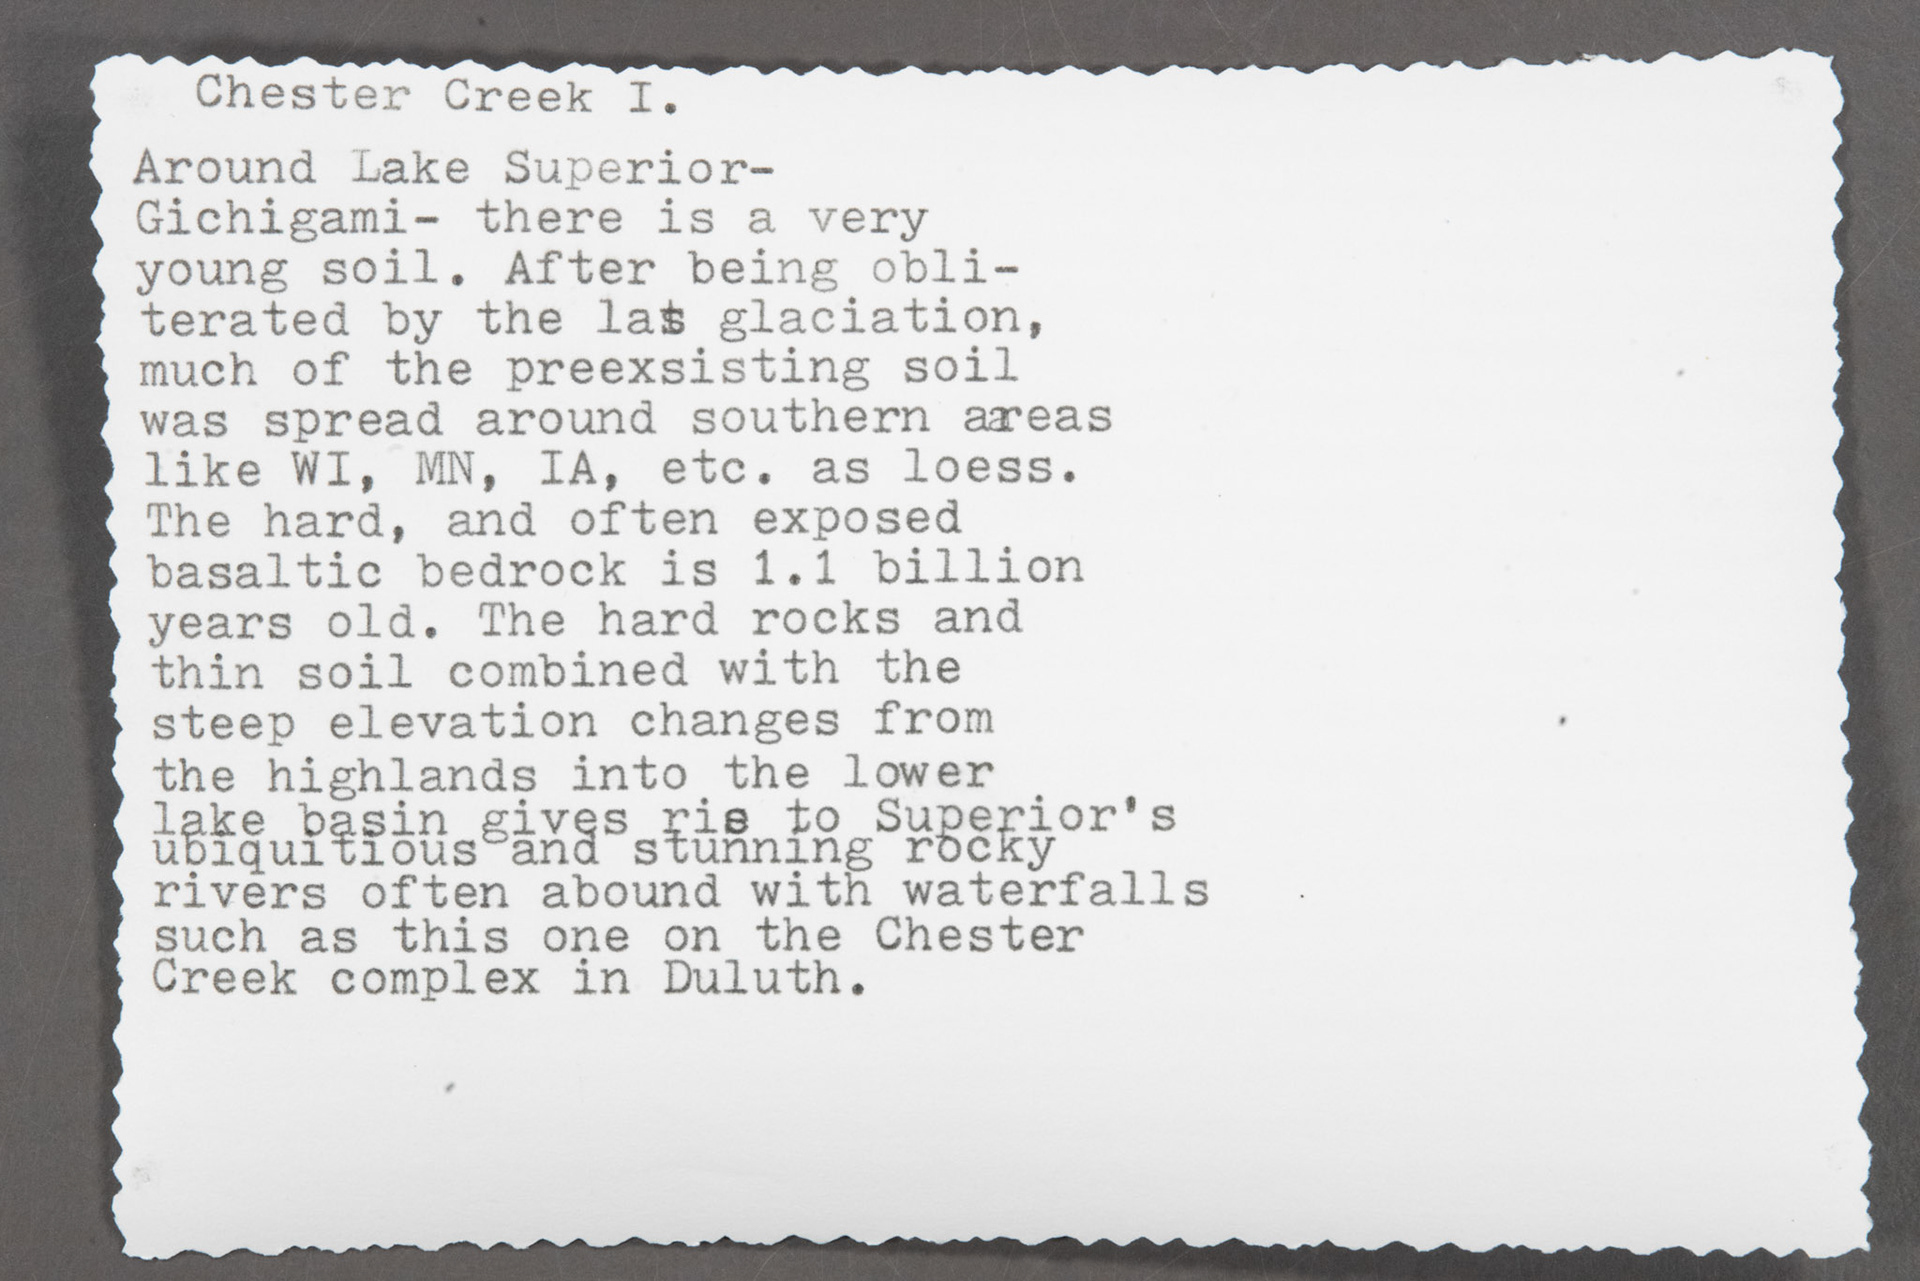 Chester Creek I.
Around Lake Superior-
Gichigami- there is a very
young soil. After being obli-
terated by the last glaciation,
much of the preexsisting soil
was spread around southern areas
like WI, MN, IA, etc. as loess.
The hard, and often exposed
basaltic bedrock is 1.1 billion
years old. The hard rocks and
thin soil combined with the
steep elevation changes from
the highlands into the lower
lake basin gives ris to Superior's
ubiquitious and stunning rocky
rivers often abound with waterfalls
such as this one on the Chester
Creek complex in Duluth.